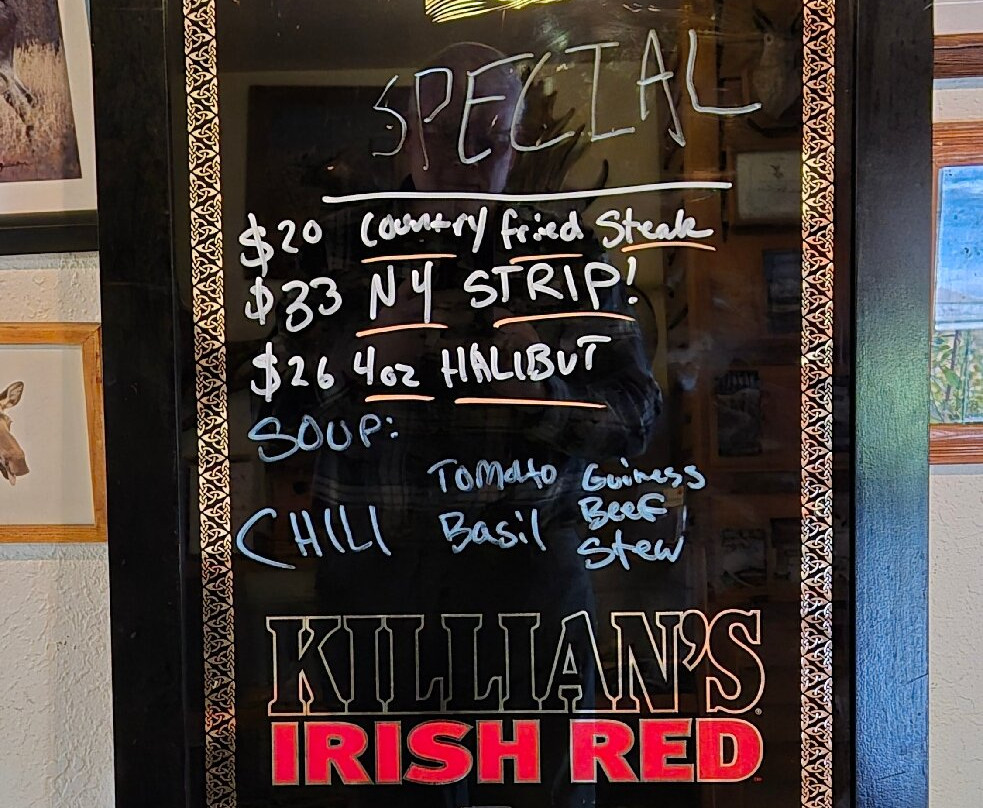 SPECIAL
$20 Country fried Steak
$33 NY STRIP!
$26 4oz HALIBUT
SOUP:
CHILI
Tomato
Basil
Guiness
Beef
Stew
KILLIAN'S
IRISH RED